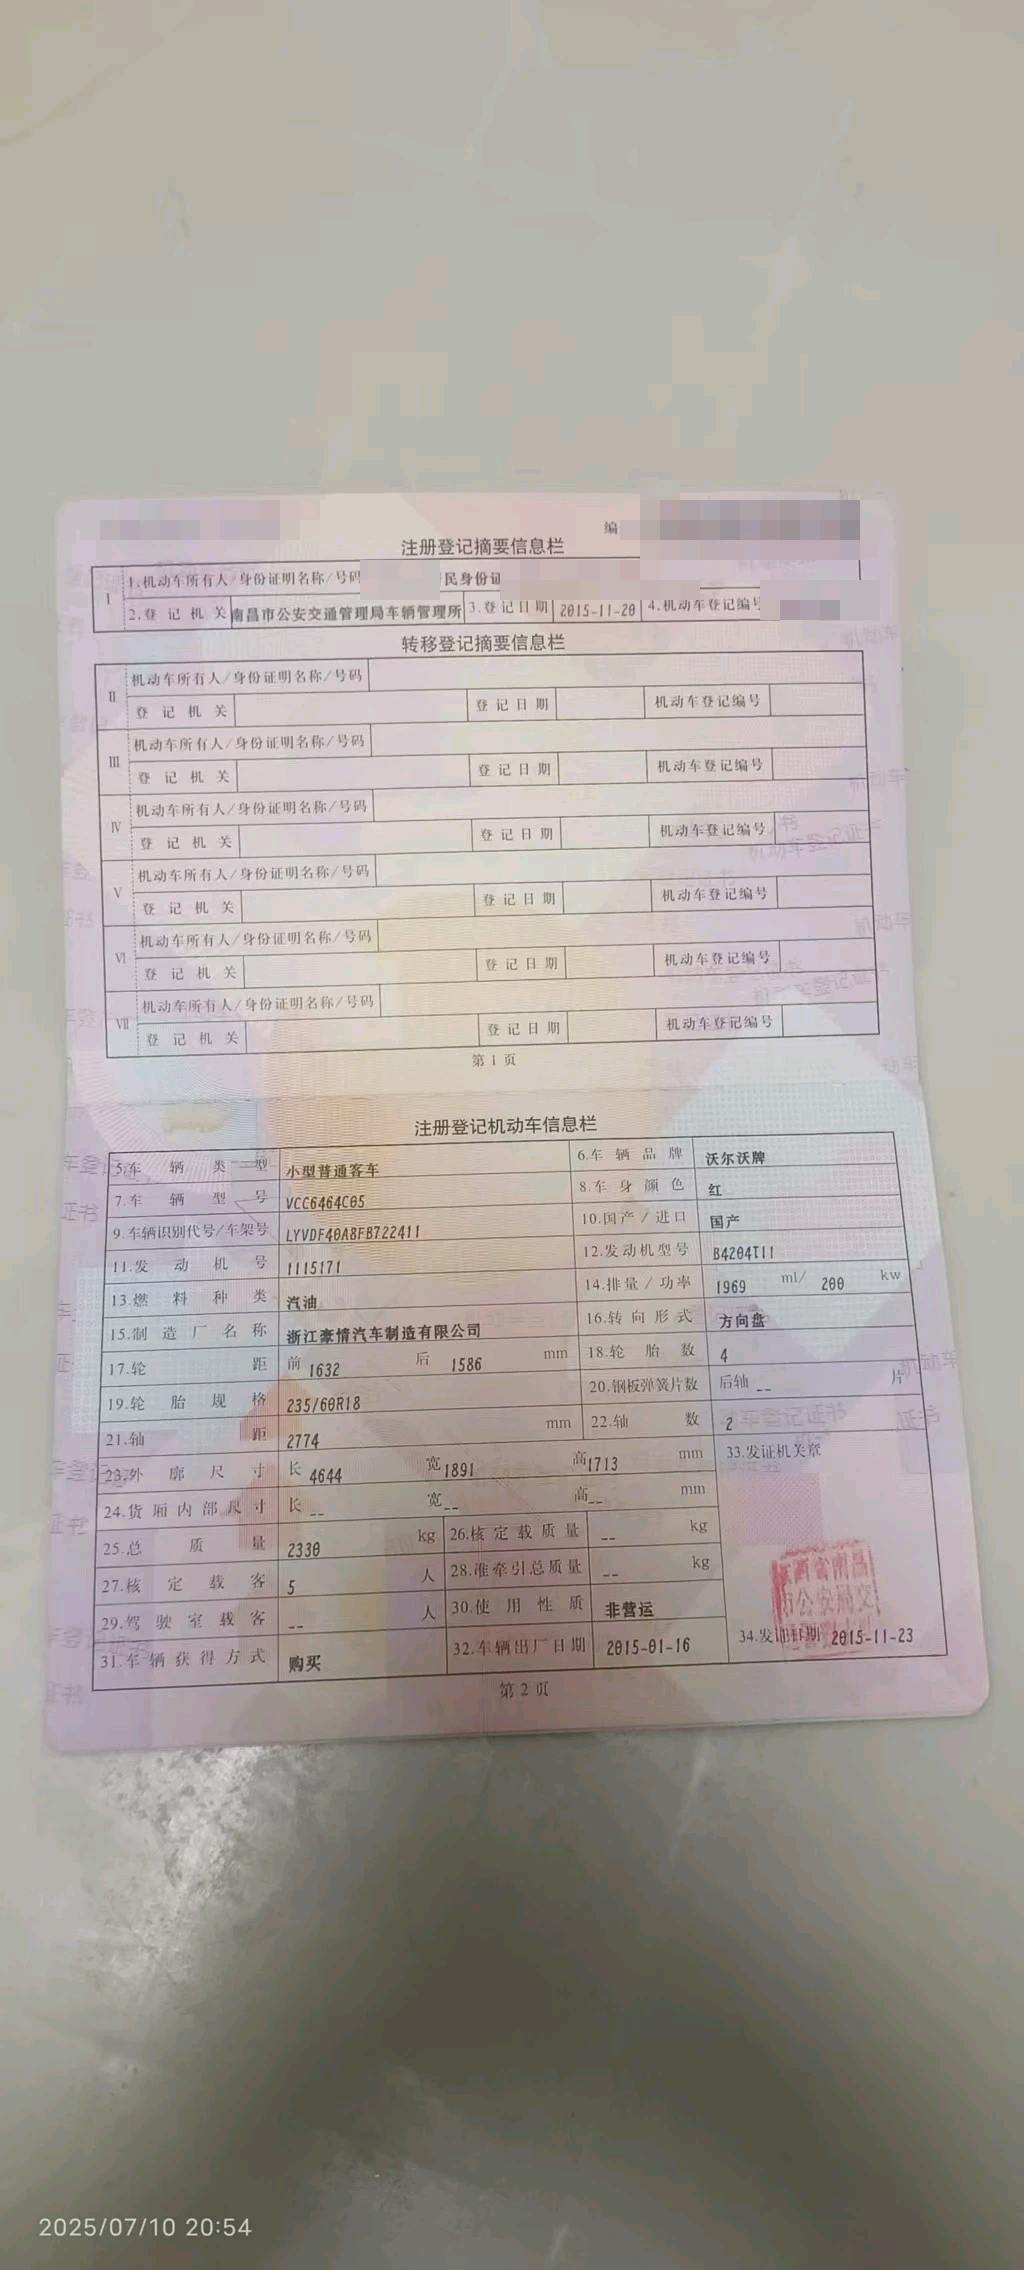 编
注册登记摘要信息栏
I 1.机动车所有人/身份证明名称/号码 民身份证
2.登记机关 南昌市公安交通管理局车辆管理所 3.登记日期 2015-11-20 4.机动车登记编号
转移登记摘要信息栏
II 机动车所有人/身份证明名称/号码
登记机关 登记日期 机动车登记编号
III 机动车所有人/身份证明名称/号码
登记机关 登记日期 机动车登记编号
IV 机动车所有人/身份证明名称/号码
登记机关 登记日期 机动车登记编号
V 机动车所有人/身份证明名称/号码
登记机关 登记日期 机动车登记编号
VI 机动车所有人/身份证明名称/号码
登记机关 登记日期 机动车登记编号
VII 机动车所有人/身份证明名称/号码
登记机关 登记日期 机动车登记编号
第1页
注册登记机动车信息栏
5.车辆类型 小型普通客车 6.车辆品牌 沃尔沃牌
7.车辆型号 VCC6464C05 8.车身颜色 红
9.车辆识别代号/车架号 LYVDF40A8FB722411 10.国产/进口 国产
11.发动机号 1115171 12.发动机型号 B4204T11
13.燃料种类 汽油 14.排量/功率 1969 ml/ 200 kw
15.制造厂名称 浙江豪情汽车制造有限公司 16.转向形式 方向盘
17.轮距 前 1632 后 1586 mm 18.轮胎数 4
19.轮胎规格 235/60R18 20.钢板弹簧片数 后轴 -- 片
21.轴距 2774 mm 22.轴数 2
23.外廓尺寸 长 4644 宽 1891 高 1713 mm 33.发证机关章
24.货厢内部尺寸 长 -- 宽 -- 高 -- mm
25.总质量 2330 kg 26.核定载质量 -- kg
27.核定载客 5 人 28.准牵引总质量 -- kg
29.驾驶室载客 -- 人 30.使用性质 非营运
31.车辆获得方式 购买 32.车辆出厂日期 2015-01-16 34.发证日期 2015-11-23
江西省南昌
市公安局交
第2页
2025/07/10 20:54